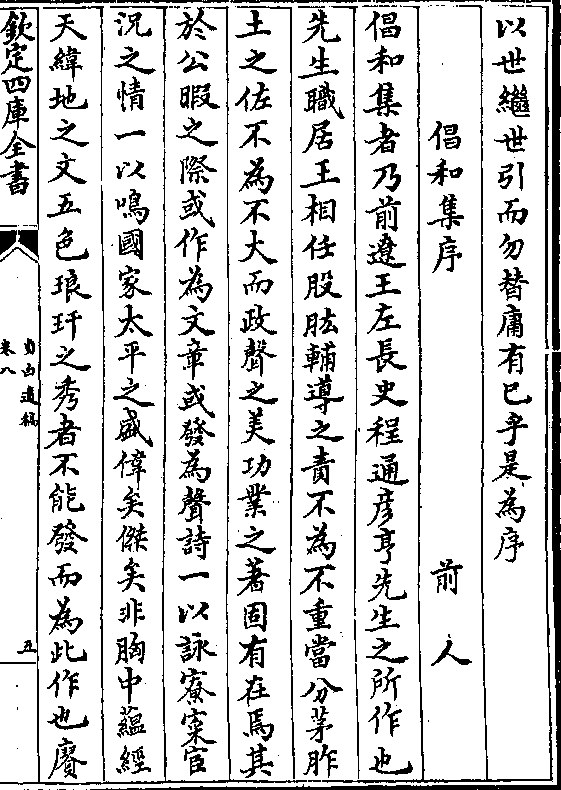 以世繼世引而勿替庸有已乎是為序
倡和集序　前人
倡和集者乃前遼王左長史程通彦亨先生之所作也
先生職居王相任股肱輔導之責不為不重當分茅胙
土之佐不為不大而政聲之美功業之著固有在焉其
於公暇之際或作為文章或發為聲詩一以詠寮寀宦
況之情一以鳴國家太平之盛偉矣傑矣非胸中蘊經
天緯地之文五色琅玕之秀者不能發而為此作也賡
欽定四庫全書
貞白遺稿
卷八
五